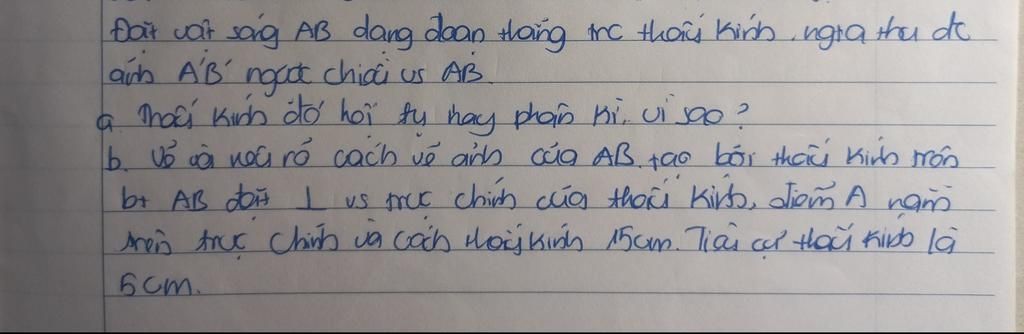 Đặt vật sáng AB dạng đoạn thẳng trc thấu kính, ngta thu đc
ảnh A'B' ngược chiều vs AB.
a. Thấu kính đó hội tụ hay phân kì, vì sao?
b. Vẽ và nêu rõ cách vẽ ảnh của AB tạo bởi thấu kính trên
bt AB đặt ⊥ vs trục chính của thấu kính, điểm A nằm
trên trục chính và cách thấu kính 15cm. Tiêu cự thấu kính là
5cm.